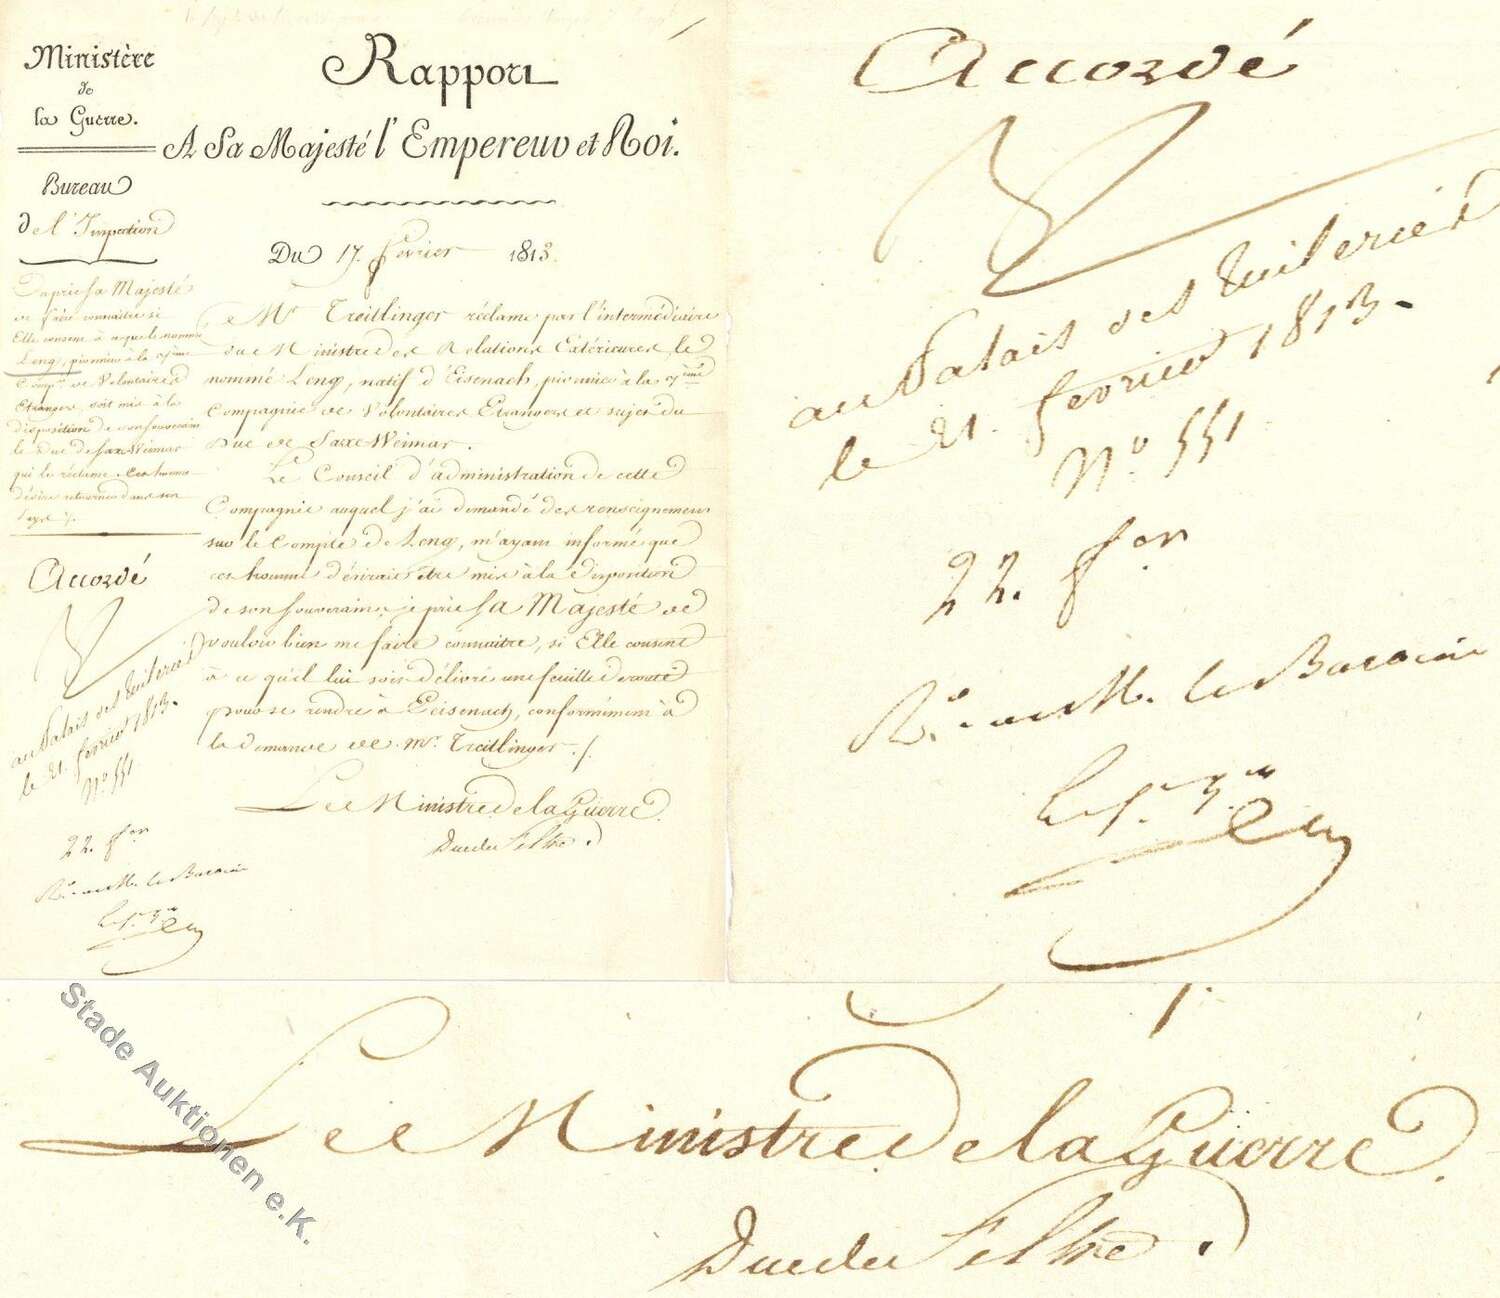 Ministère
de
la Guerre.
Rapport
A Sa Majesté l'Empereur et Roi.
Bureau
de l'Inspection
Du 17. février 1813.
On prie Sa Majesté
de faire connaître si
Elle consent à ce que le nommé
Leng, pionnier à la
Compie de Volontaires
Etrangers, soit mis à la
disposition de son souverain
le Duc de Saxe Weimar
qui le réclame. Cet homme
désire retourner dans son
Pays ./.
Mr Treitlinger réclame par l'intermédiaire
du Ministre des Relations Extérieures, le
nommé Leng, natif d'Eisenach, pionnier à la
Compagnie de Volontaires Etrangers et sujet du
Duc de Saxe Weimar.
Le Conseil d'administration de cette
Compagnie auquel j'ai demandé des renseignemens
sur le Compte de Leng, m'ayant informé que
cet homme désirait être mis à la disposition
de son Souverain, je prie Sa Majesté de
vouloir bien me faire connaître, si Elle consent
à ce qu'il lui soit délivré une feuille de route
pour se rendre à Eeisenach, conformément à
la demande de Mr. Treitlinger ./.
Le Ministre de la Guerre.
Duc de Feltre.
Accordé
au Palais des Tuileries
le 21. février 1813.
No. 551
22. fer
Accordé
au Palais des Tuileries
le 21. février 1813.
No. 551
22. fer
Le Ministre de la Guerre.
Duc de Feltre.
Stade Auktionen e.K.